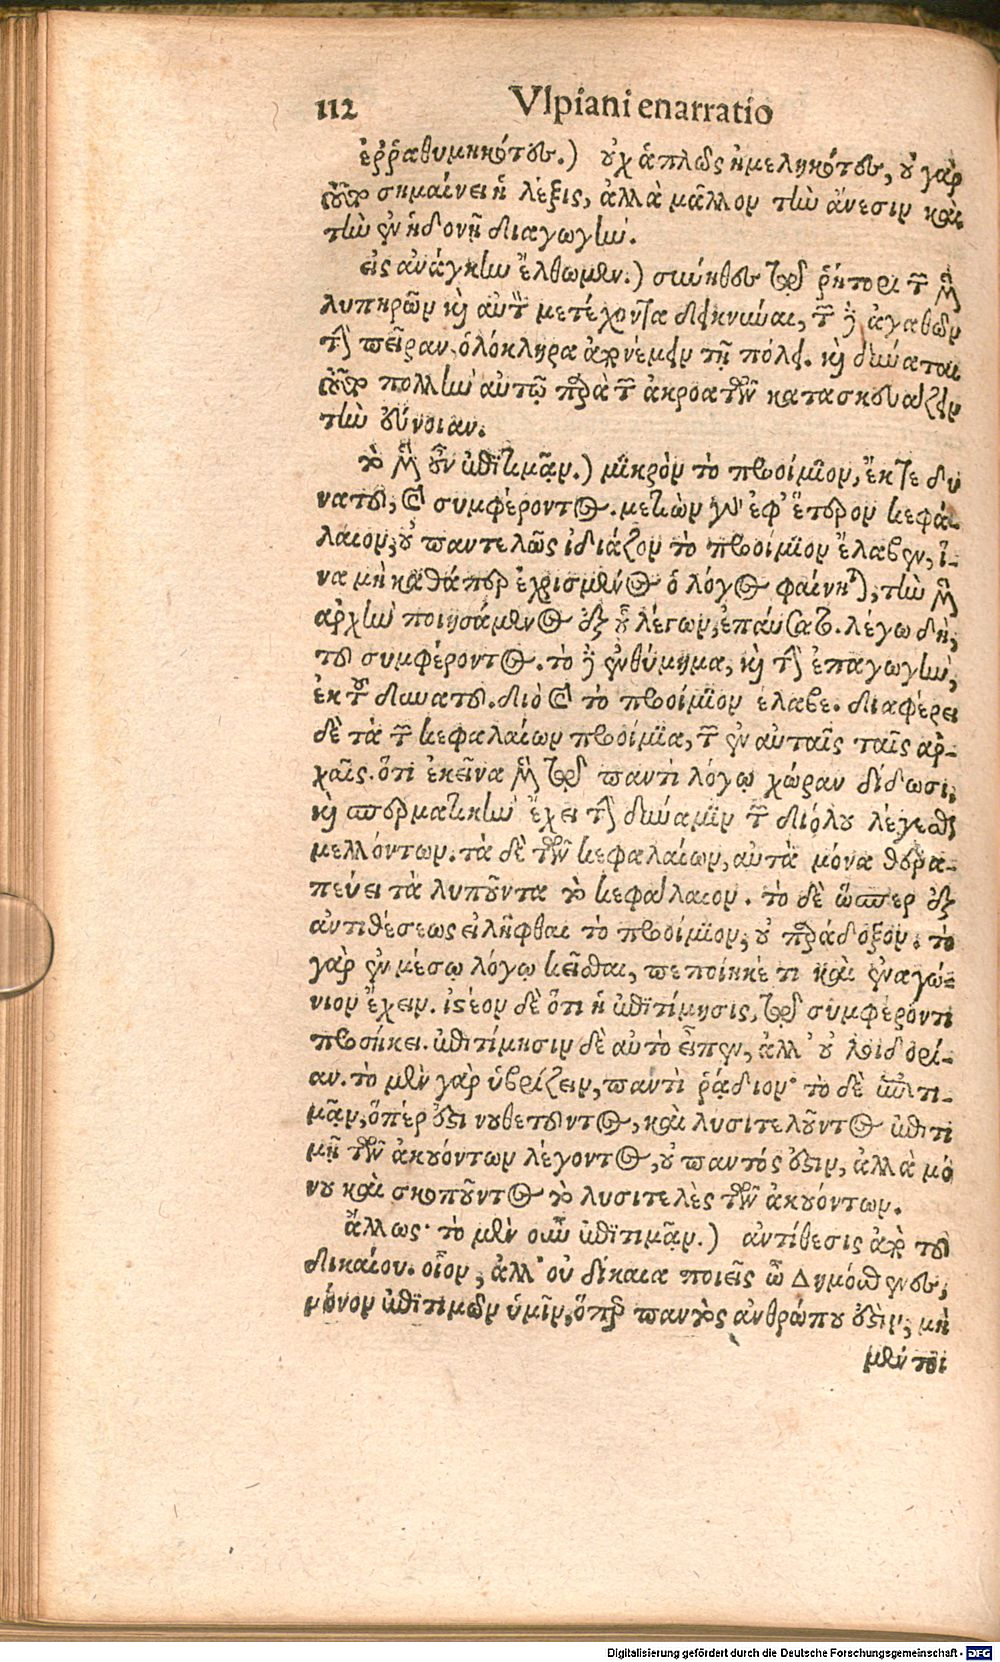 112 Vlpiani enarratio
ἐῤῥαθυμηκότος.) οὐχ ἁπλῶς ἠμεληκότος, οὐ γὰρ
τοῦτο σημαίνει ἡ λέξις, ἀλλὰ μᾶλλον τὴν ἄνεσιν καὶ
τὴν ἐν ἡδονῇ διαγωγήν.
εἰς ἀνάγκην ἔλθωμεν.) σύνηθες τῷ ῥήτορι τῶν μὲν
λυπηρῶν καὶ αὐτὸν μετέχοντα δεικνύναι, τῶν δὲ ἀγαθῶν
τὴν πεῖραν ὁλόκληρα ἀπονέμειν τῇ πόλει. καὶ δύναται
τοῦτο πολλὴν αὐτῷ παρὰ τῶν ἀκροατῶν κατασκευάζειν
τὴν εὔνοιαν.
τὸ μὲν οὖν ἐπιτιμᾶν.) μικρὸν τὸ προοίμιον, ἔκ τε δυ
νατοῦ, καὶ συμφέροντος. μετιὼν γὰρ ἐφ' ἕτερον κεφά-
λαιον, οὐ παντελῶς ἰδιάζον τὸ προοίμιον ἔλαβεν, ἵ-
να μὴ καθάπερ ἐχρισμένος ὁ λόγος φαίνηται, τὴν μὲν
ἀρχὴν ποιησάμενος ἐξ οὗ λέγων ἐπαύσατο. λέγω δὴ,
τοῦ συμφέροντος. τὸ δὲ ἐνθύμημα, καὶ τὴν ἐπαγωγὴν,
ἐκ τοῦ δυνατοῦ. διὸ καὶ τὸ προοίμιον ἔλαβε. διαφέρει
δὲ τὰ τῶν κεφαλαίων προοίμια, τῶν ἐν αὐταῖς ταῖς ἀρ-
χαῖς. ὅτι ἐκεῖνα μὲν τῷ παντὶ λόγῳ χώραν δίδωσι,
καὶ σπερματικὴν ἔχει τὴν δύναμιν τῶν διόλου λέγεσθαι
μελλόντων. τὰ δὲ τῶν κεφαλαίων, αὐτὰ μόνα θερα-
πεύει τὰ λυποῦντα τὸ κεφάλαιον. τὸ δὲ ὥσπερ ἐξ
ἀντιθέσεως εἰλῆφθαι τὸ προοίμιον, οὐ παράδοξον. τὸ
γὰρ ἐν μέσῳ λόγῳ κεῖσθαι, πεποίηκέ τι καὶ ἐναγώ-
νιον ἔχειν. ἰστέον δὲ ὅτι ἡ ἐπιτίμησις, τῷ συμφέροντι
προσήκει. ἐπιτίμησιν δὲ αὐτὸ εἶπεν, ἀλλ' οὐ λοιδορί-
αν. τὸ μὲν γὰρ ὑβρίζειν, παντὶ ῥᾴδιον· τὸ δὲ ἐπιτι-
μᾶν, ὅπερ ἐστὶ νουθετοῦντος, καὶ λυσιτελοῦντος ἐπιτι
μῇ τῶν ἀκουόντων λέγοντος, οὐ παντός ἐστιν, ἀλλὰ μό
νου καὶ σκοποῦντος τὸ λυσιτελὲς τῶν ἀκουόντων.
ἄλλως· τὸ μὲν οὖν ἐπιτιμᾶν.) ἀντίθεσις ἀπὸ τοῦ
δικαίου. οἷον, ἀλλ' οὐ δίκαια ποιεῖς ὦ Δημόσθενες,
μόνον ἐπιτιμῶν ὑμῖν, ὅπερ παντὸς ἀνθρώπου ἐστὶν, μὴ
μέν τοι
Digitalisierung gefördert durch die Deutsche Forschungsgemeinschaft - DFG